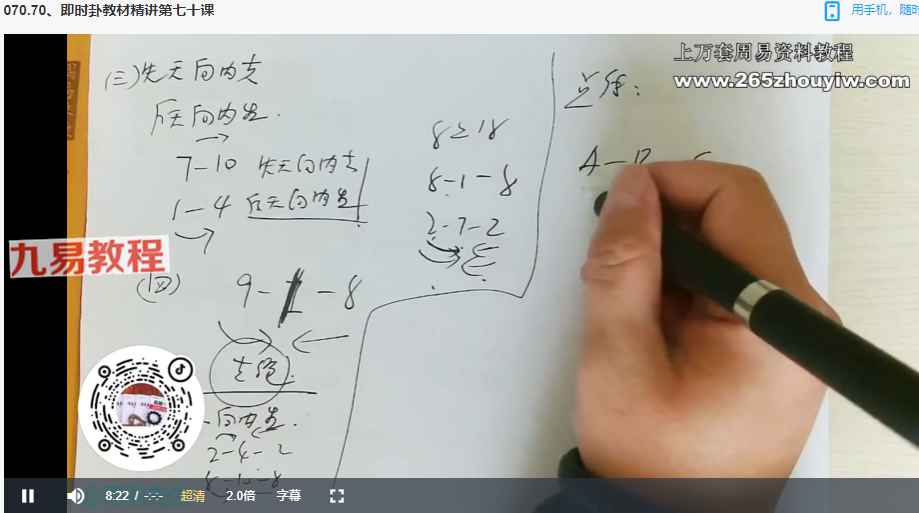 070.70、即时卦教材精讲第七十课
用手机，随时
上万套周易资料教程
www.265zhouyiw.com
(三)先天向内克
后天向内生.
7-10 先天向内克
1-4 后天向内生
九易教程
(四)
9-1-8
克绝
向内生.
2-4-2
8-10-8
8≥18
8-1-8
2-7-2
8:22 / -:-:-
超清
2.0倍
字幕